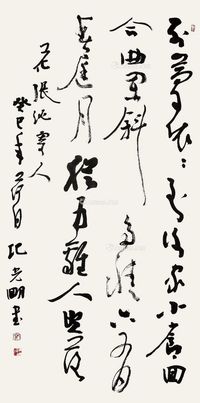 别梦依依到谢家小廊回
合曲阑斜多情只有
春庭月犹为离人照落
花 张泌寄人
癸巳年 月 纪光明书